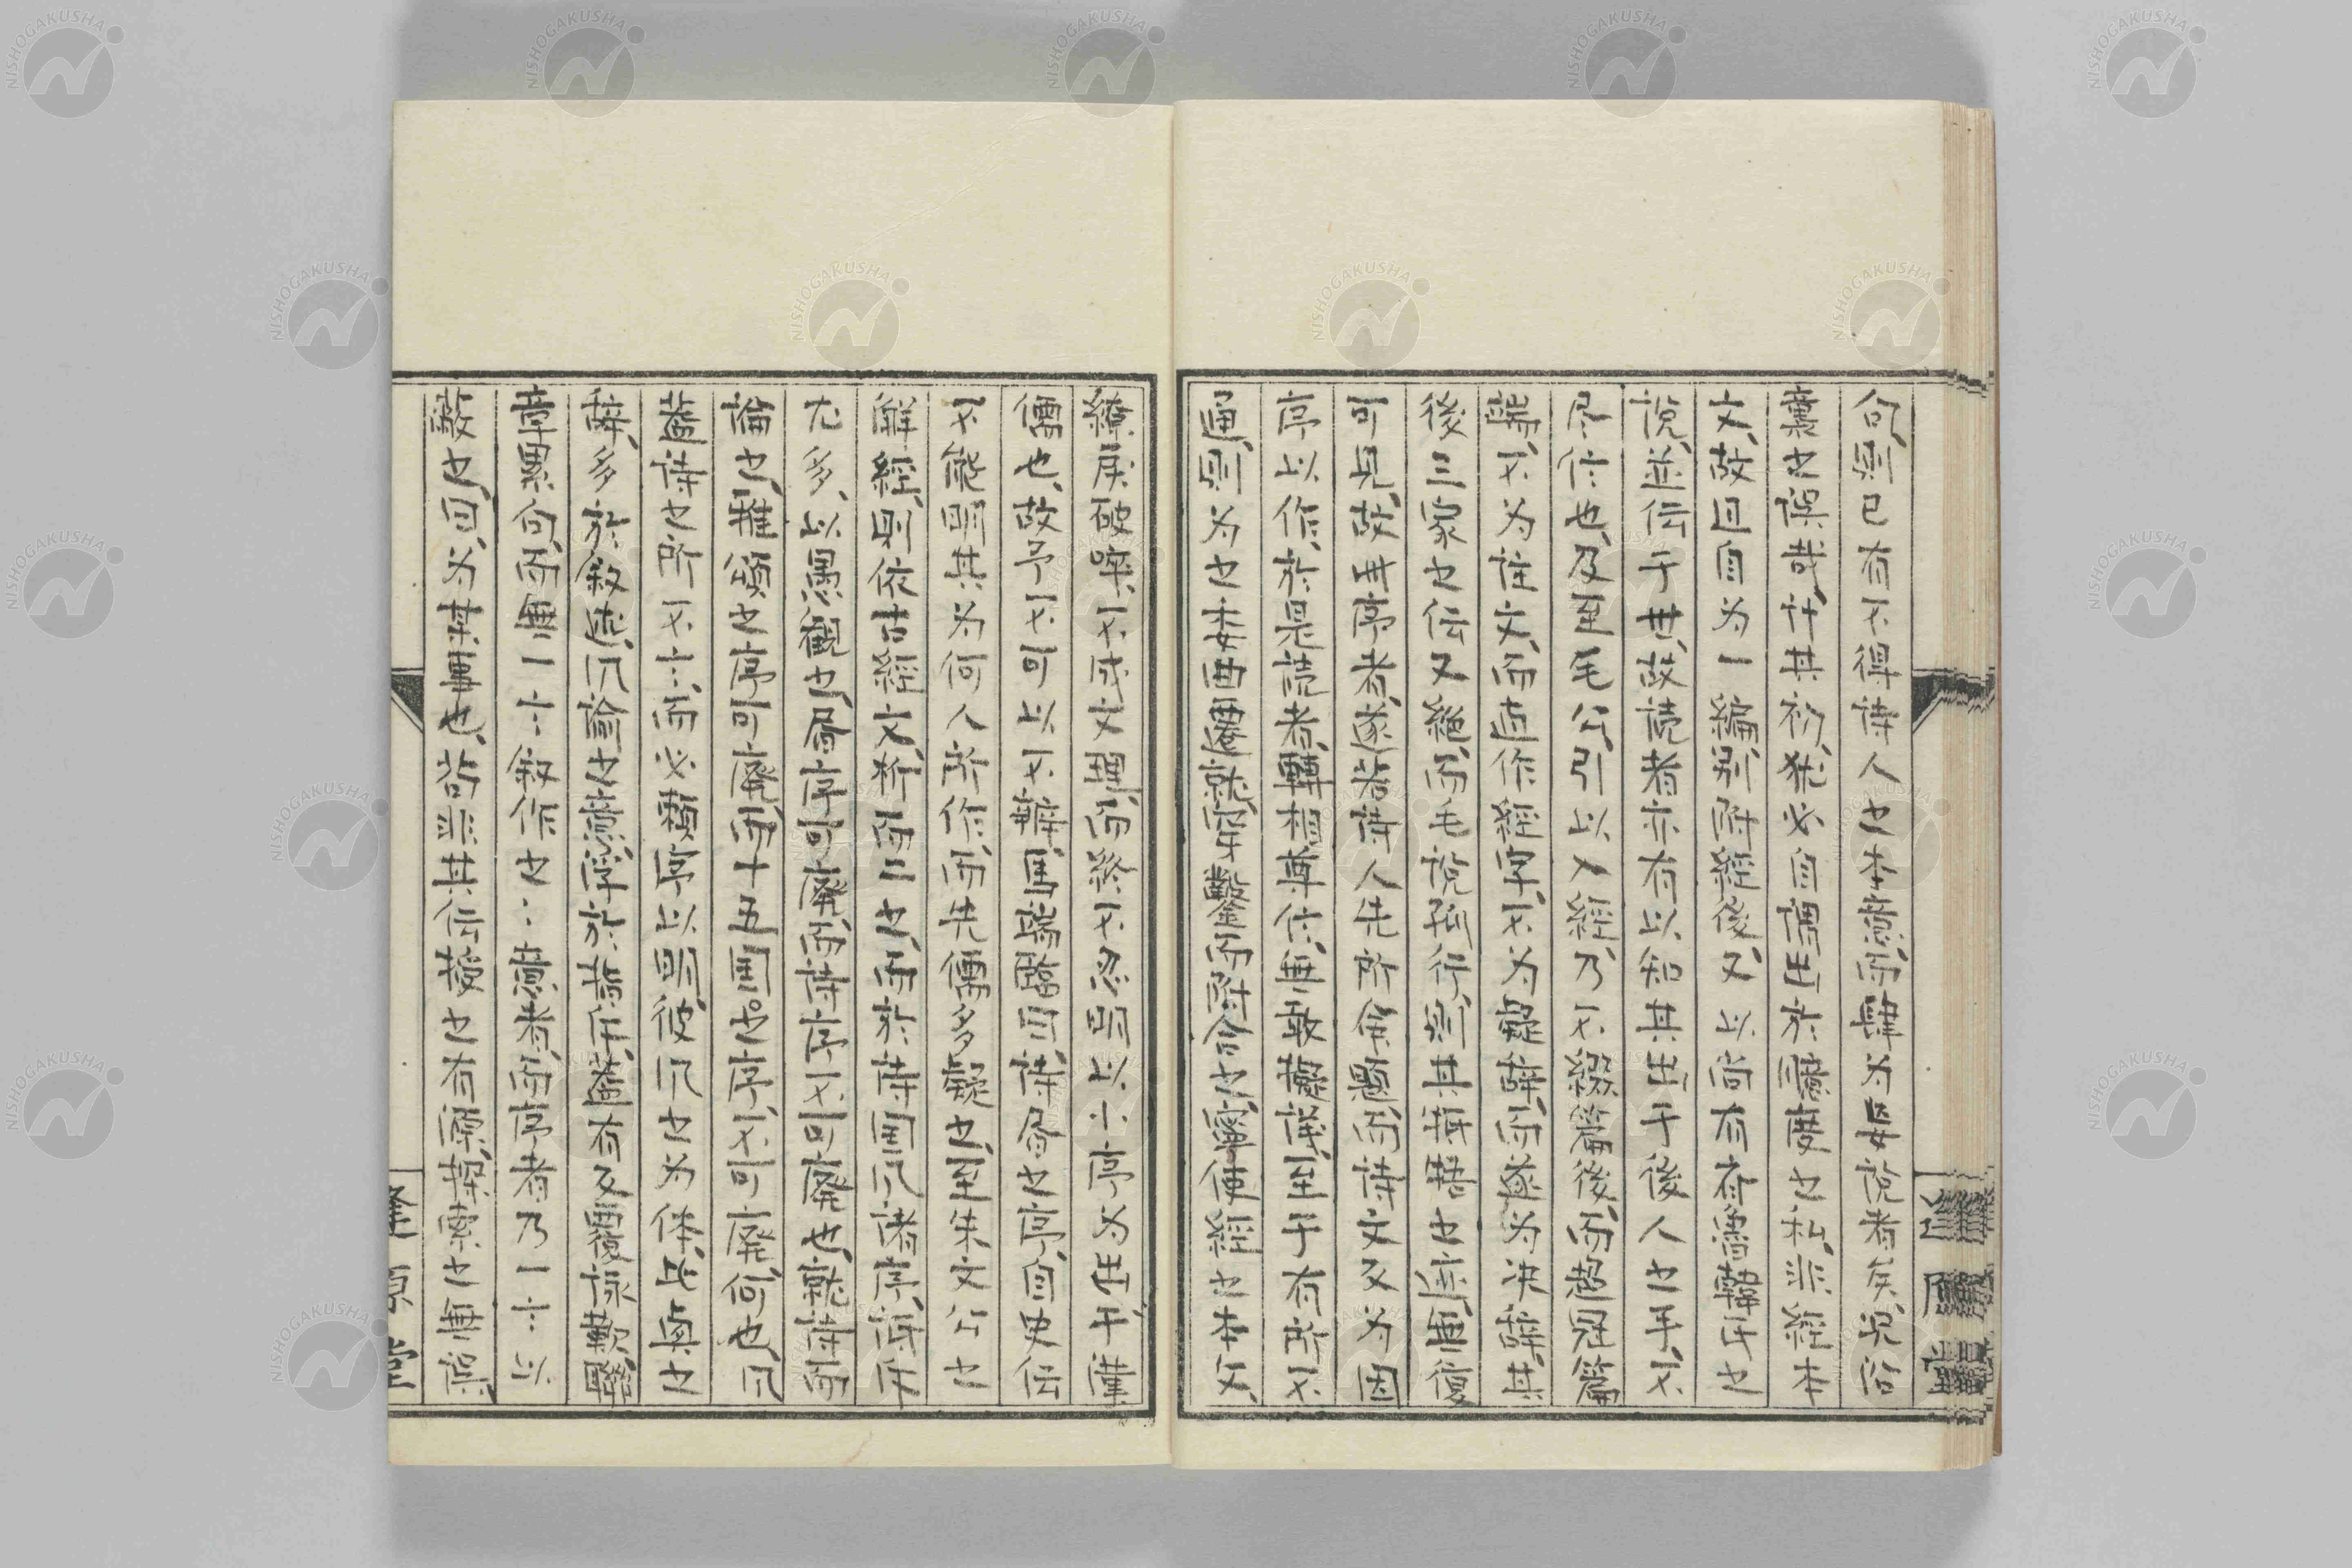 句、則已有不得詩人之本意、而肆为妄説者矣、况㳂
襲之誤哉、什其初、猶必自謂出於臆度之私、非經本
文、故且自为一編、別附經後、又以尚有斉魯韓氏之
説、並伝于世、故読者亦有以知其出于後人之手、不
尽信也、及至毛公、引以入經、乃不綴篇後、而超冠篇
端、不为注文、而直作經字、不为疑辞、而遂为决辞、其
後三家之伝又絶、而毛説孤行、則其牴牾之迹、無復
可見、故此序者、遂若詩人先所命題、而詩文反为因
序以作、於是読者、轉相尊信、無敢擬議、至于有所不
通、則为之委曲遷就、穿鑿而附合之、寧使經之本文、
繚戻破碎、不成文理、而終不忍明以小序为出于漢
儒也、故予不可以不辨、馬端臨曰、詩、書之序、自史伝
不能明其为何人所作、而先儒多疑之、至朱文公之
解經、則依古經文、析而二之、而於詩国风諸序、詆斥
尤多、以愚観之、書序可廃、而詩序不可廃也、就詩而
論之、雅頌之序可廃、而十五国之序、不可廃、何也、风
蓋詩之所不々、而必頼序以明、彼风之为体、比興之
辞、多於叙述、风諭之意、浮於指斥、蓋有反覆詠歎、聯
章累句、而無一言叙作之之意者、而序者乃一言以
蔽之、曰、为某事也、苟非其伝授之有源、探索之無誤